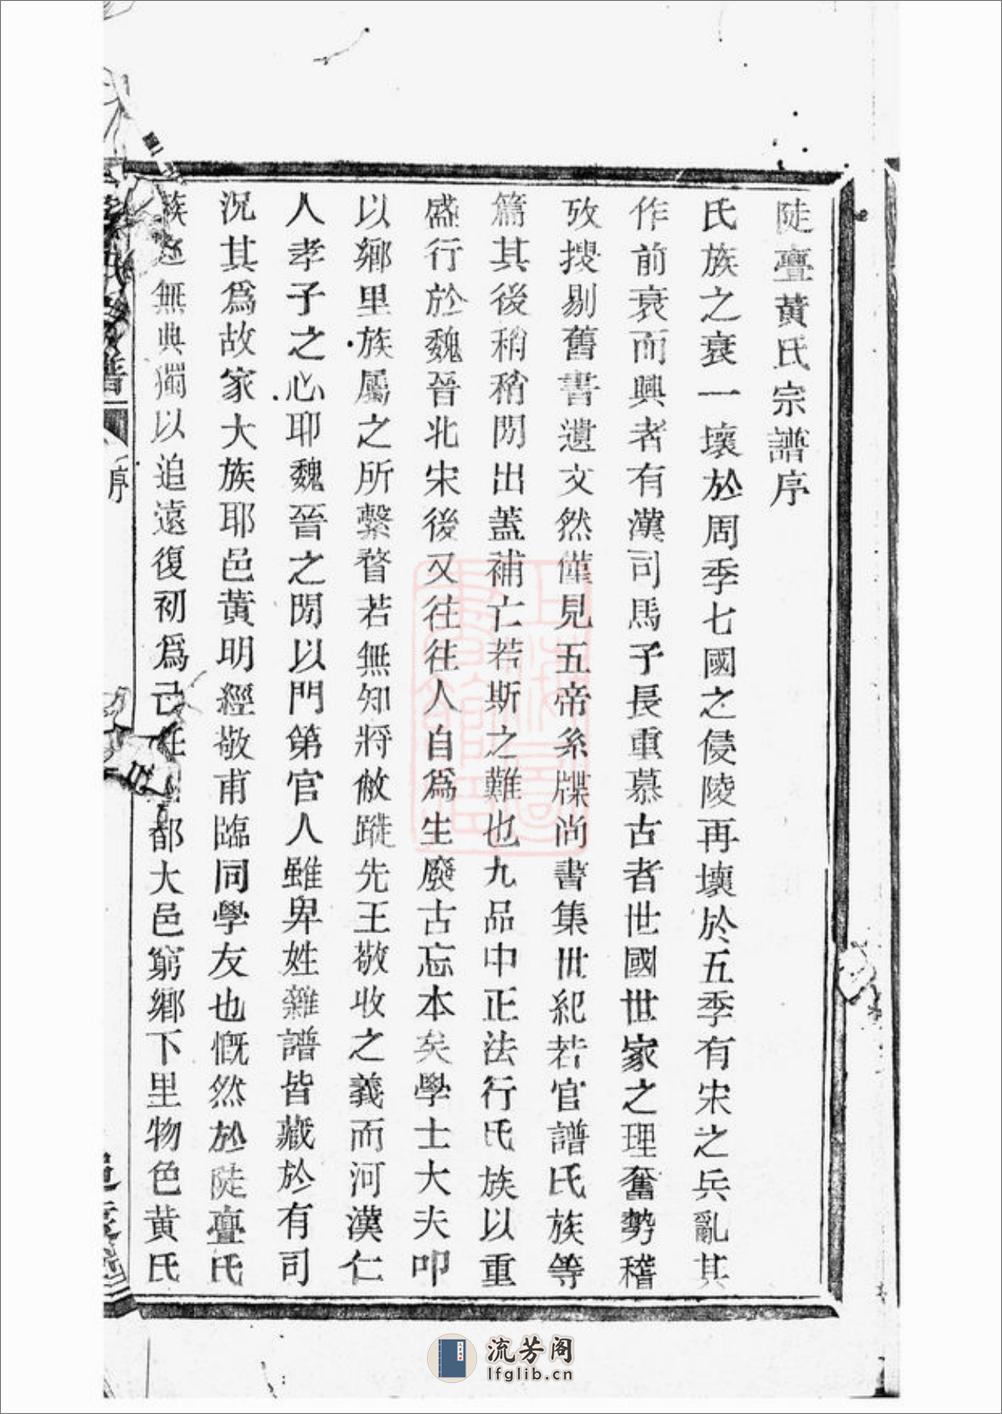 陡亹黃氏宗譜序
氏族之衰一壞於周季七國之侵陵再壞於五季有宋之兵亂其
作前衰而興者有漢司馬子長重慕古者世國世家之理奮勢稽
攷搜剔舊書遺文然僅見五帝系牒尚書集世紀若官譜氏族等
篇其後稍稍閒出蓋補亡若斯之難也九品中正法行氏族以重
盛行於魏晉北宋後又往往人自爲生廢古忘本矣學士大夫叩
以鄉里族屬之所繫瞀若無知將敝蹝先王敬收之義而河漢仁
人孝子之心耶魏晉之閒以門第官人雖卑姓雜譜皆藏於有司
況其爲故家大族耶邑黃明經敬甫臨同學友也慨然於陡亹氏
族 無典獨以追遠復初爲己 都大邑窮鄉下里物色黃氏
序
流芳阁
lfglib.cn